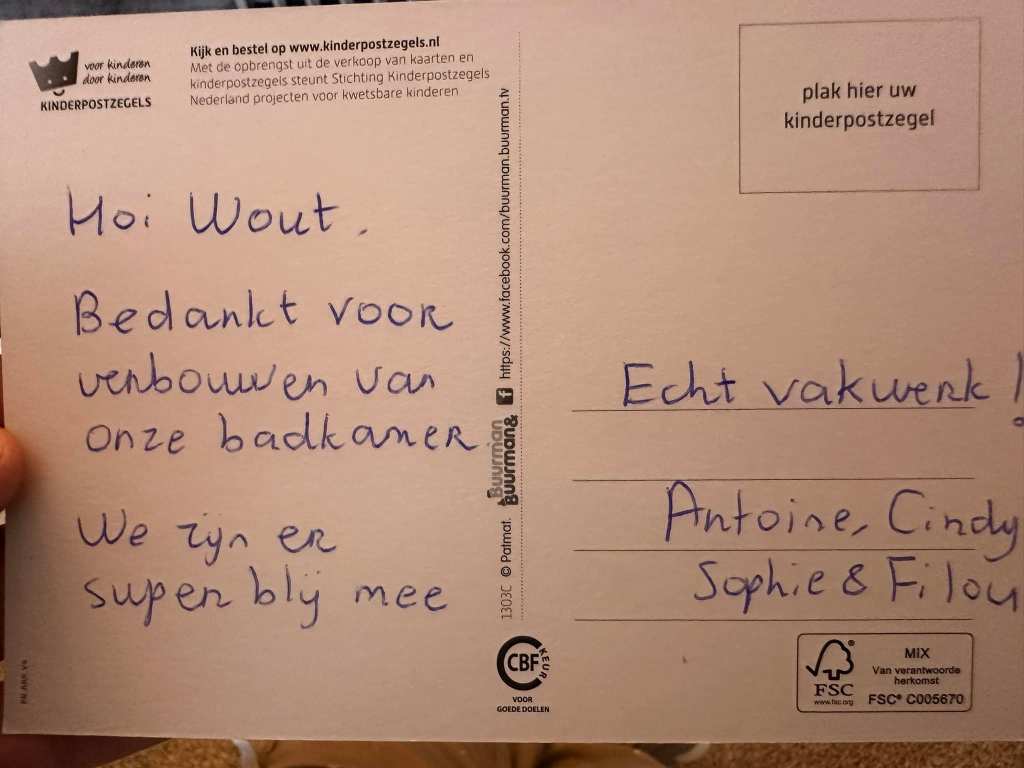 voor kinderen
door kinderen
KINDERPOSTZEGELS
Kijk en bestel op www.kinderpostzegels.nl
Met de opbrengst uit de verkoop van kaarten en
kinderpostzegels steunt Stichting Kinderpostzegels
Nederland projecten voor kwetsbare kinderen
plak hier uw
kinderpostzegel
Hoi Wout.
Bedankt voor
verbouwen van
onze badkamer
We zijn er
super blij mee
1303C © Patmat. Buurman & Buurman https://www.facebook.com/buurman.buurman.tv
Echt vakwerk!
Antoine, Cindy
Sophie & Filou
CBF KEUR
VOOR
GOEDE DOELEN
FSC
www.fsc.org
MIX
Van verantwoorde
herkomst
FSC® C005670